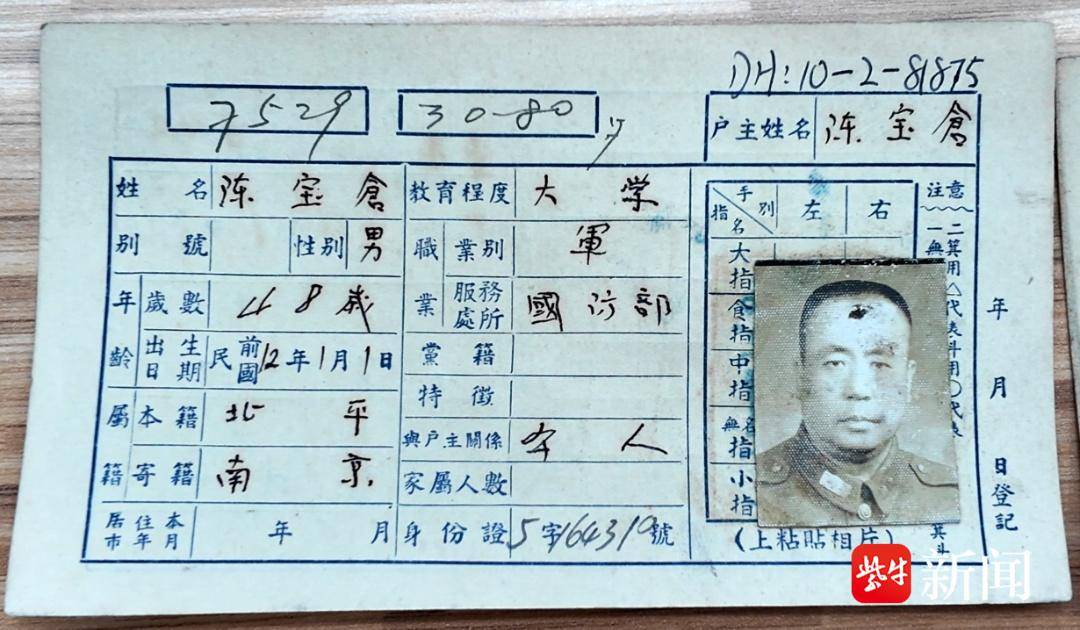 DH:10-2-81875
7529
30-80
户主姓名 陈宝倉
姓名 陈宝倉
教育程度 大学
別號
性別 男
職業 業別 軍
年齡 歲數 48歲
服務處所 國防部
出生日期 民國前12年1月1日
黨籍
特徵
屬籍 本籍 北平
與戶主關係 本人
寄籍 南京
家屬人數
居住本市年月 年 月
身份證 5字164310號
手別 指名 左 右
大指
食指
中指
無名指
小指
(上粘貼相片)
注意
一無
二箕用△代表斗用○代表
箕斗
年 月 日登記
紫牛新闻